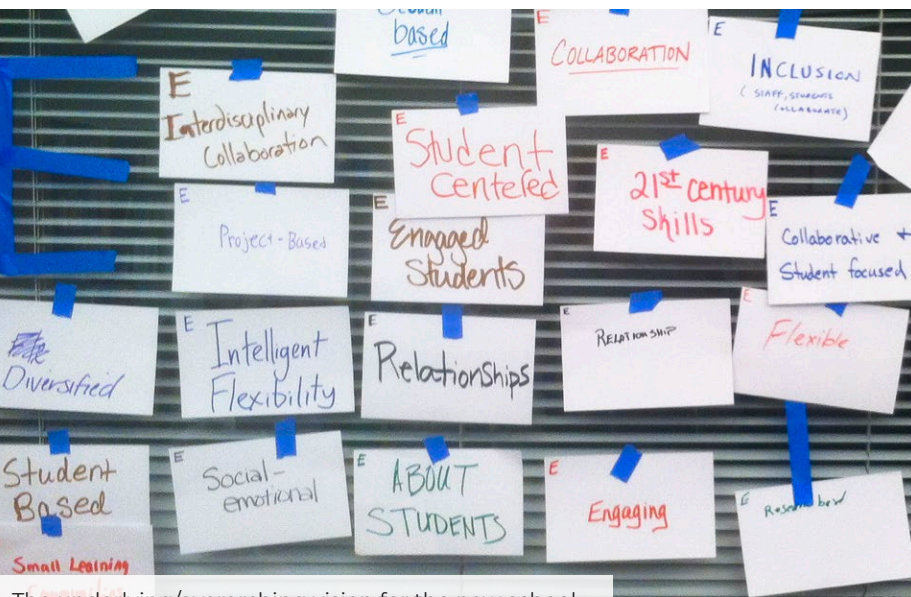 based
E
COLLABORATION
E
INCLUSION
( STAFF, STUDENTS
COLLABORATE)
E
Interdisciplinary
Collaboration
E
Student
Centered
E
21st century
Skills
E
Project-Based
E
Engaged
Students
E
Collaborative +
Student focused
Diversified
E
Intelligent
Flexibility
E
Relationships
E
RELATIONSHIP
E
Flexible
Student
Based
E
Social-
emotional
E
ABOUT
STUDENTS
E
Engaging
E
Small Learning